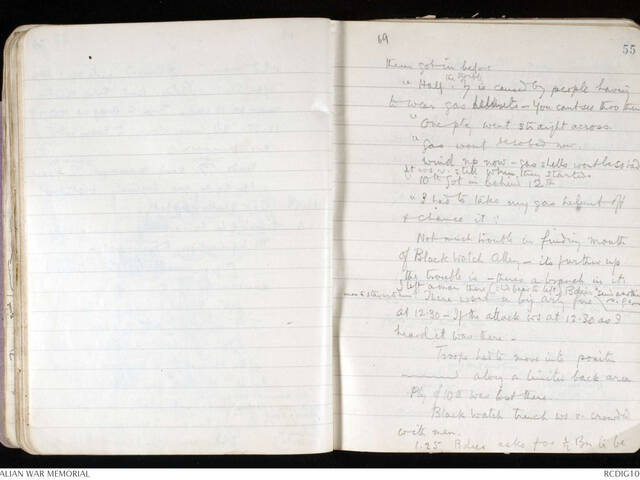 69
55
them got in before
" Half the trouble is caused by people having
to wear gas helmets - You cant see thro them
" One ply went straight across
" Gas wont be so bad now.
wind up now - gas shells wont be so bad
It ws v. still when they started.
10th Got in behind 12th
" I had to take my gas helmet off
& chance it!
Not much trouble in finding mouth
of Black Watch Alley - its further up
the trouble is - theres a branch in it.
I left a man there
There was a big arty fire
at 12.30 - If the attack ws at 12.30 as I
heard it was there -
Troops had to move into positn
along a limited back area
Ply of 10th was lost there
Black Watch trench ws v. crowded
with men.
1.25 asks for Bn to be
ALIAN WAR MEMORIAL
RCDIG10